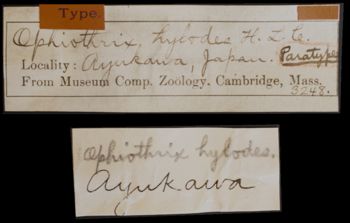 Type.
Ophiothrix hylodes H. L. C.
Locality: Ayukawa, Japan. Paratype
From Museum Comp. Zoology, Cambridge, Mass.
3248.
Ophiothrix hylodes.
Ayukawa